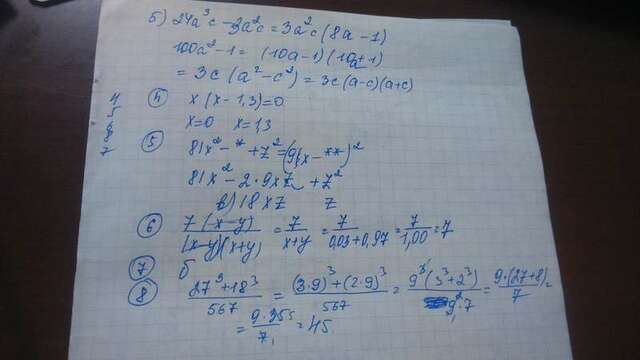 б) 24a³c - 3a²c = 3a²c (8a - 1)
100a² - 1 = (10a-1)(10a+1)
= 3c (a² - c²) = 3c(a-c)(a+c)
4
5
6
7
④ x(x-1,3)=0
x=0 x=1,3
⑤ 81x² - * + z² = (9x - **)²
81x² - 2·9xz + z²
в) 18xz z
⑥ 7(x-y)/(x-y)(x+y) = 7/x+y = 7/0,03+0,97 = 7/1,00 = 7
⑦ б
⑧ 27³+18³/567 = (3·9)³+(2·9)³/567 = 9³(3³+2³)/9²·7 = 9·(27+8)/7 =
= 9·35⁵/7₁ = 45